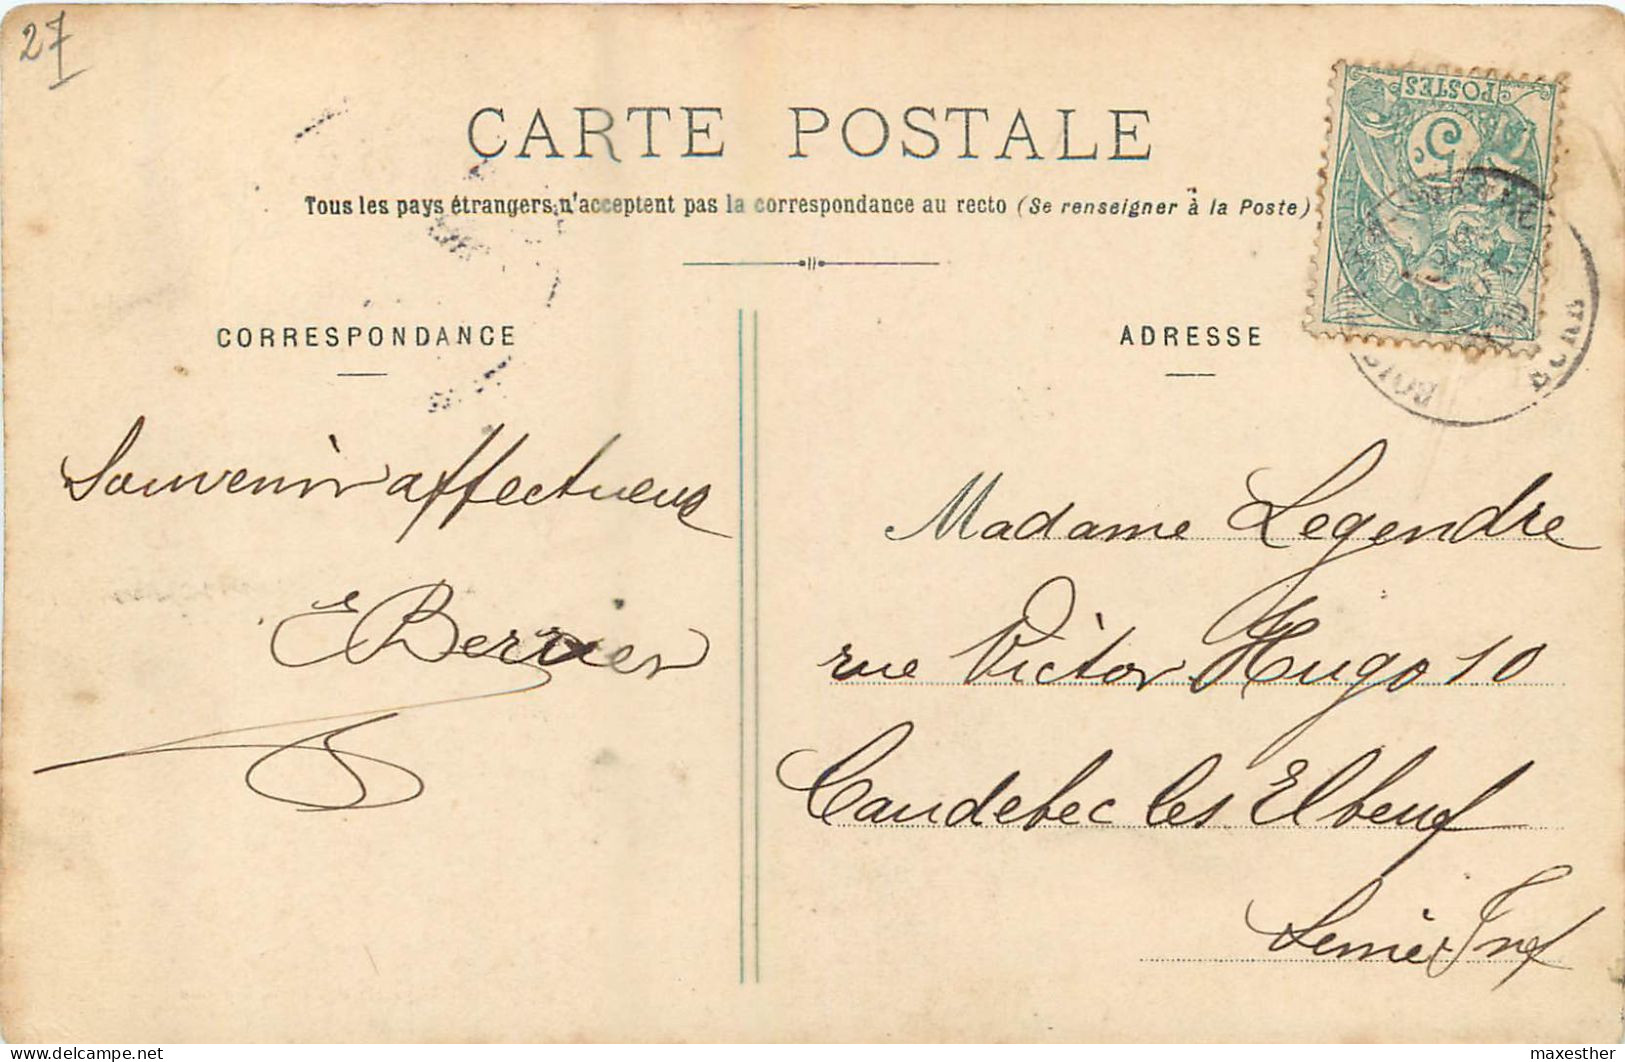 27
CARTE POSTALE
Tous les pays étrangers n'acceptent pas la correspondance au recto (Se renseigner à la Poste)
POSTES
5
CORRESPONDANCE
ADRESSE
Souvenir affectueux
E Berrier
Madame Legendre
rue Victor Hugo 10
Caudebec les Elbeuf
Seine Inf
delcampe.net
maxesther